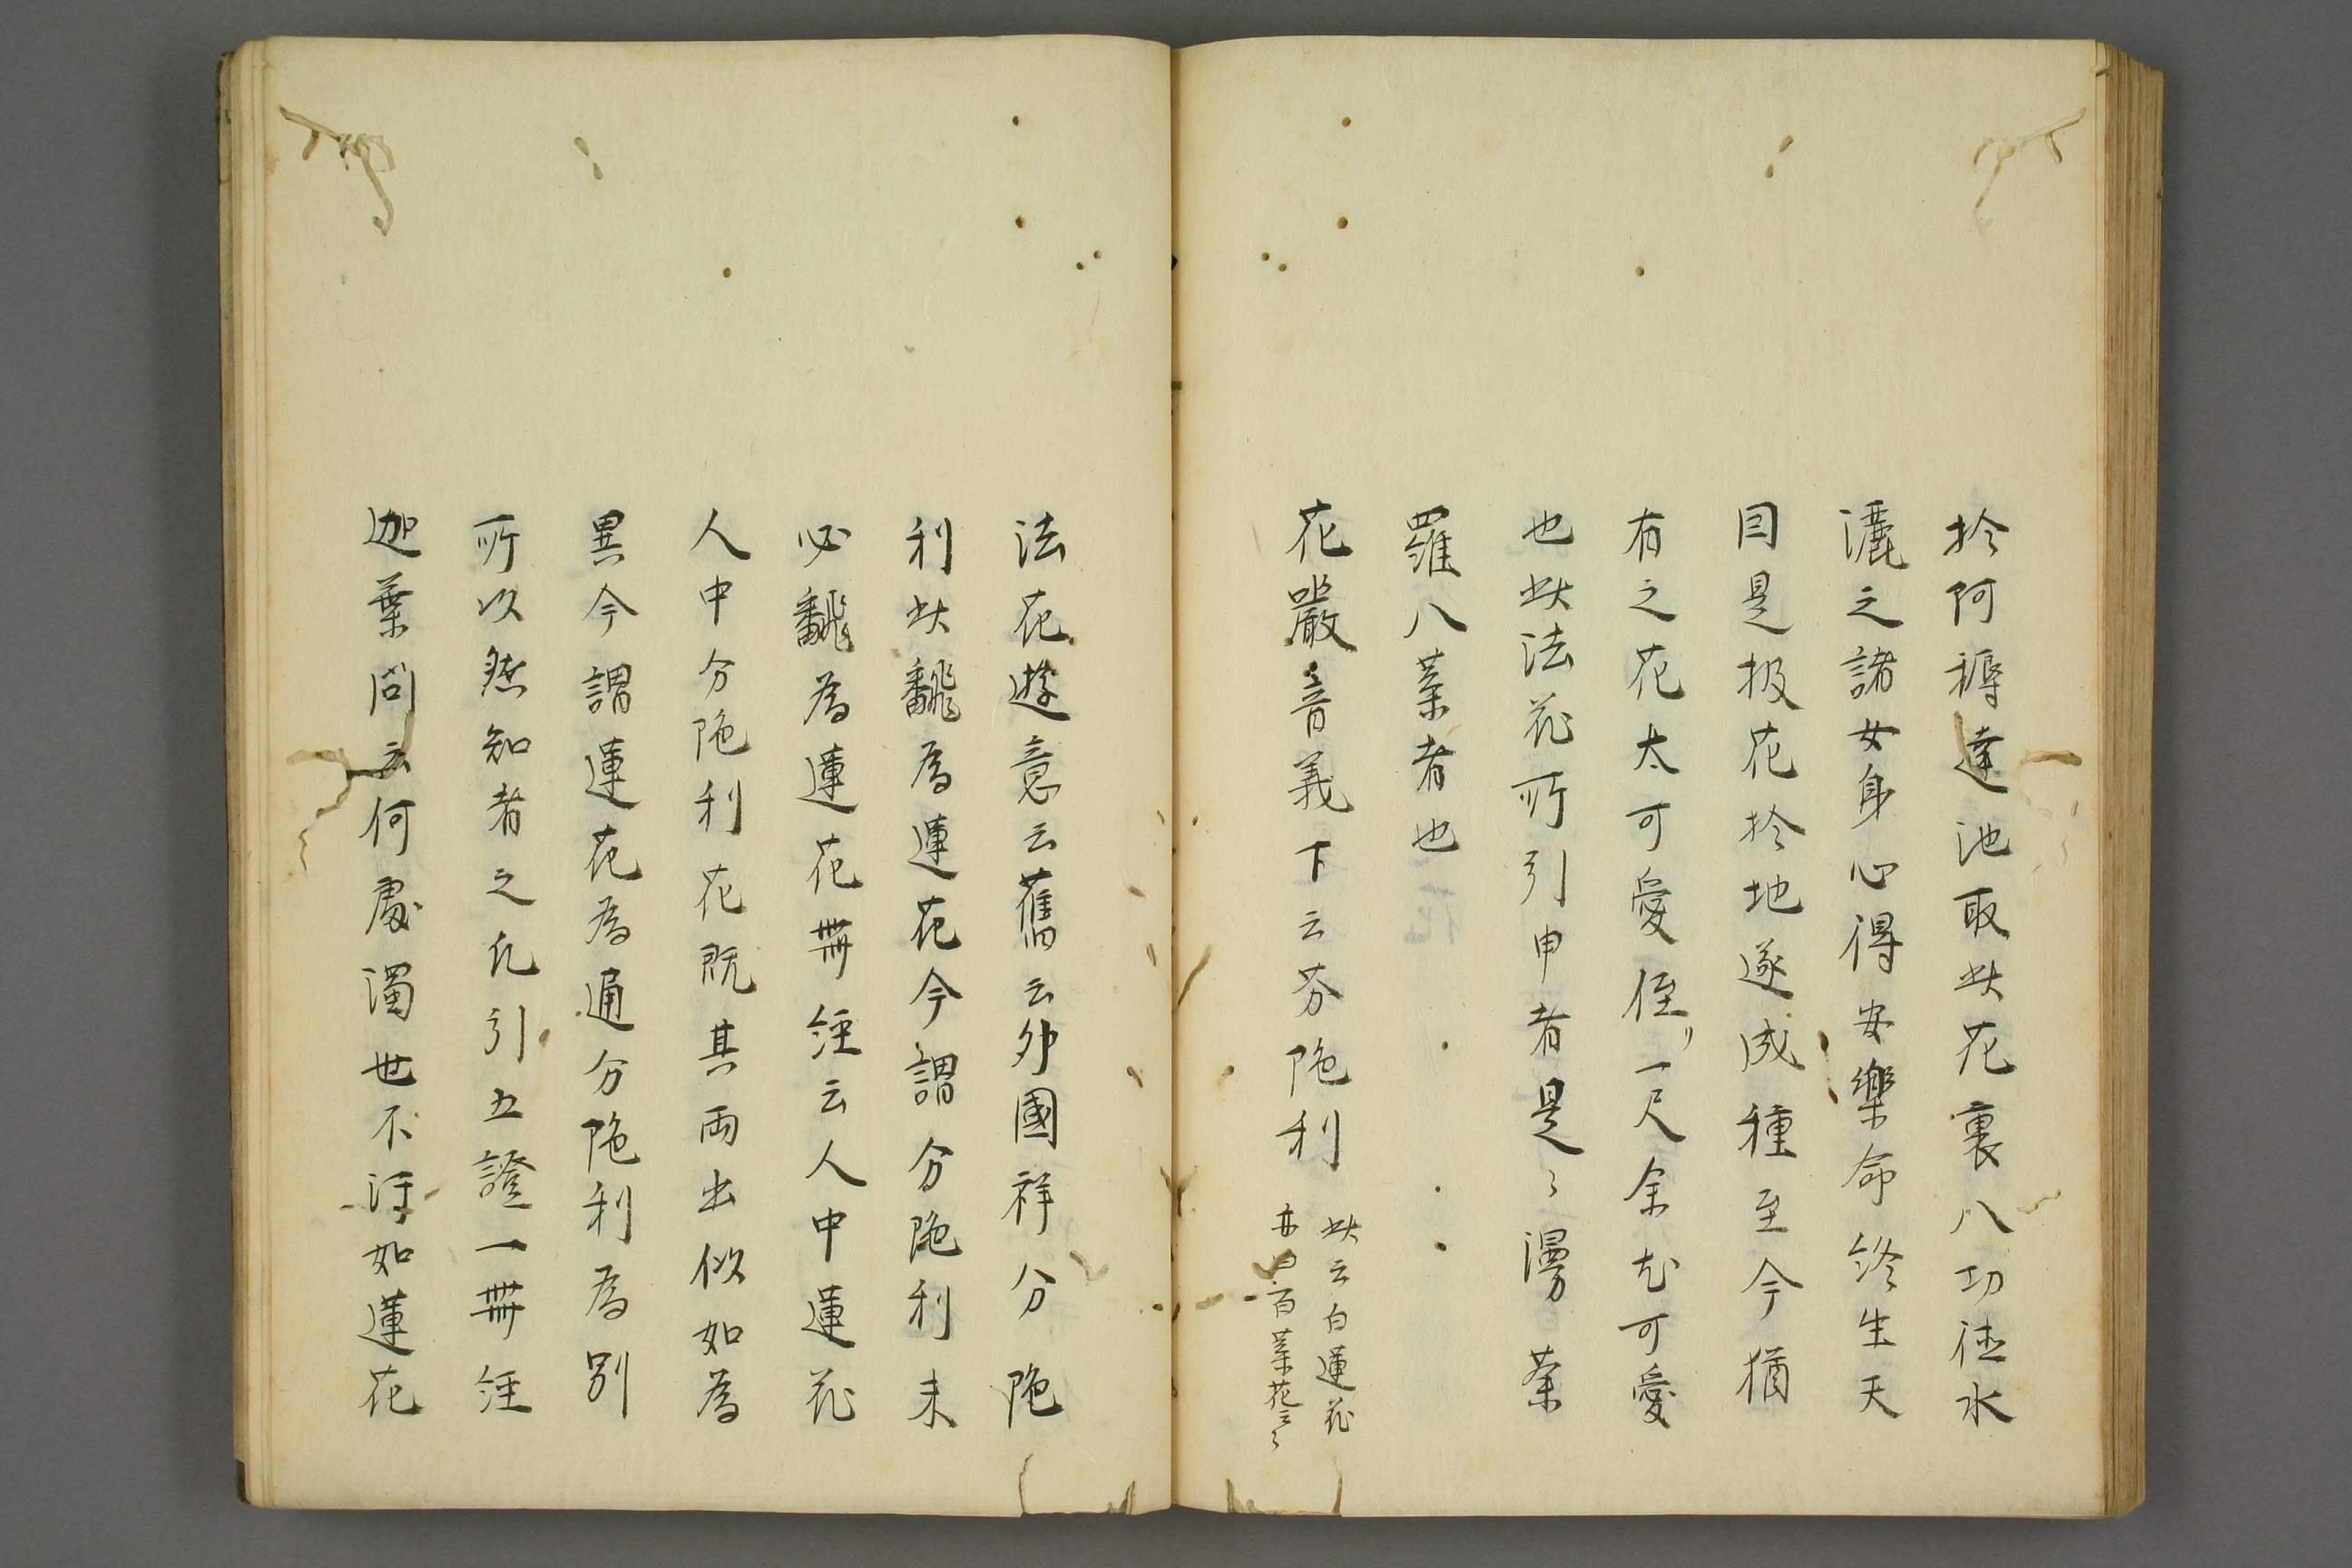 於阿耨達池取此花裏八功徳水
灑之諸女身心得安樂命終生天
因是扱花於地遂成種至今猶
有之花太可愛径〻一尺余尤可愛
也此法花所引申者是〻漫荼
羅八葉者也
花嚴音義下云芬陁利
此云白蓮花
亦曰百葉花云〻
法花遊意云舊云外國祥分陁
利此飜為蓮花今謂分陁利未
必飜為蓮花𠦜經云人中蓮花
人中分陁利花既其両出似如為
異今謂蓮花為通分陁利為別
所以然知者之凡引五證一𠦜經
迦葉問云何處濁世不汙如蓮花